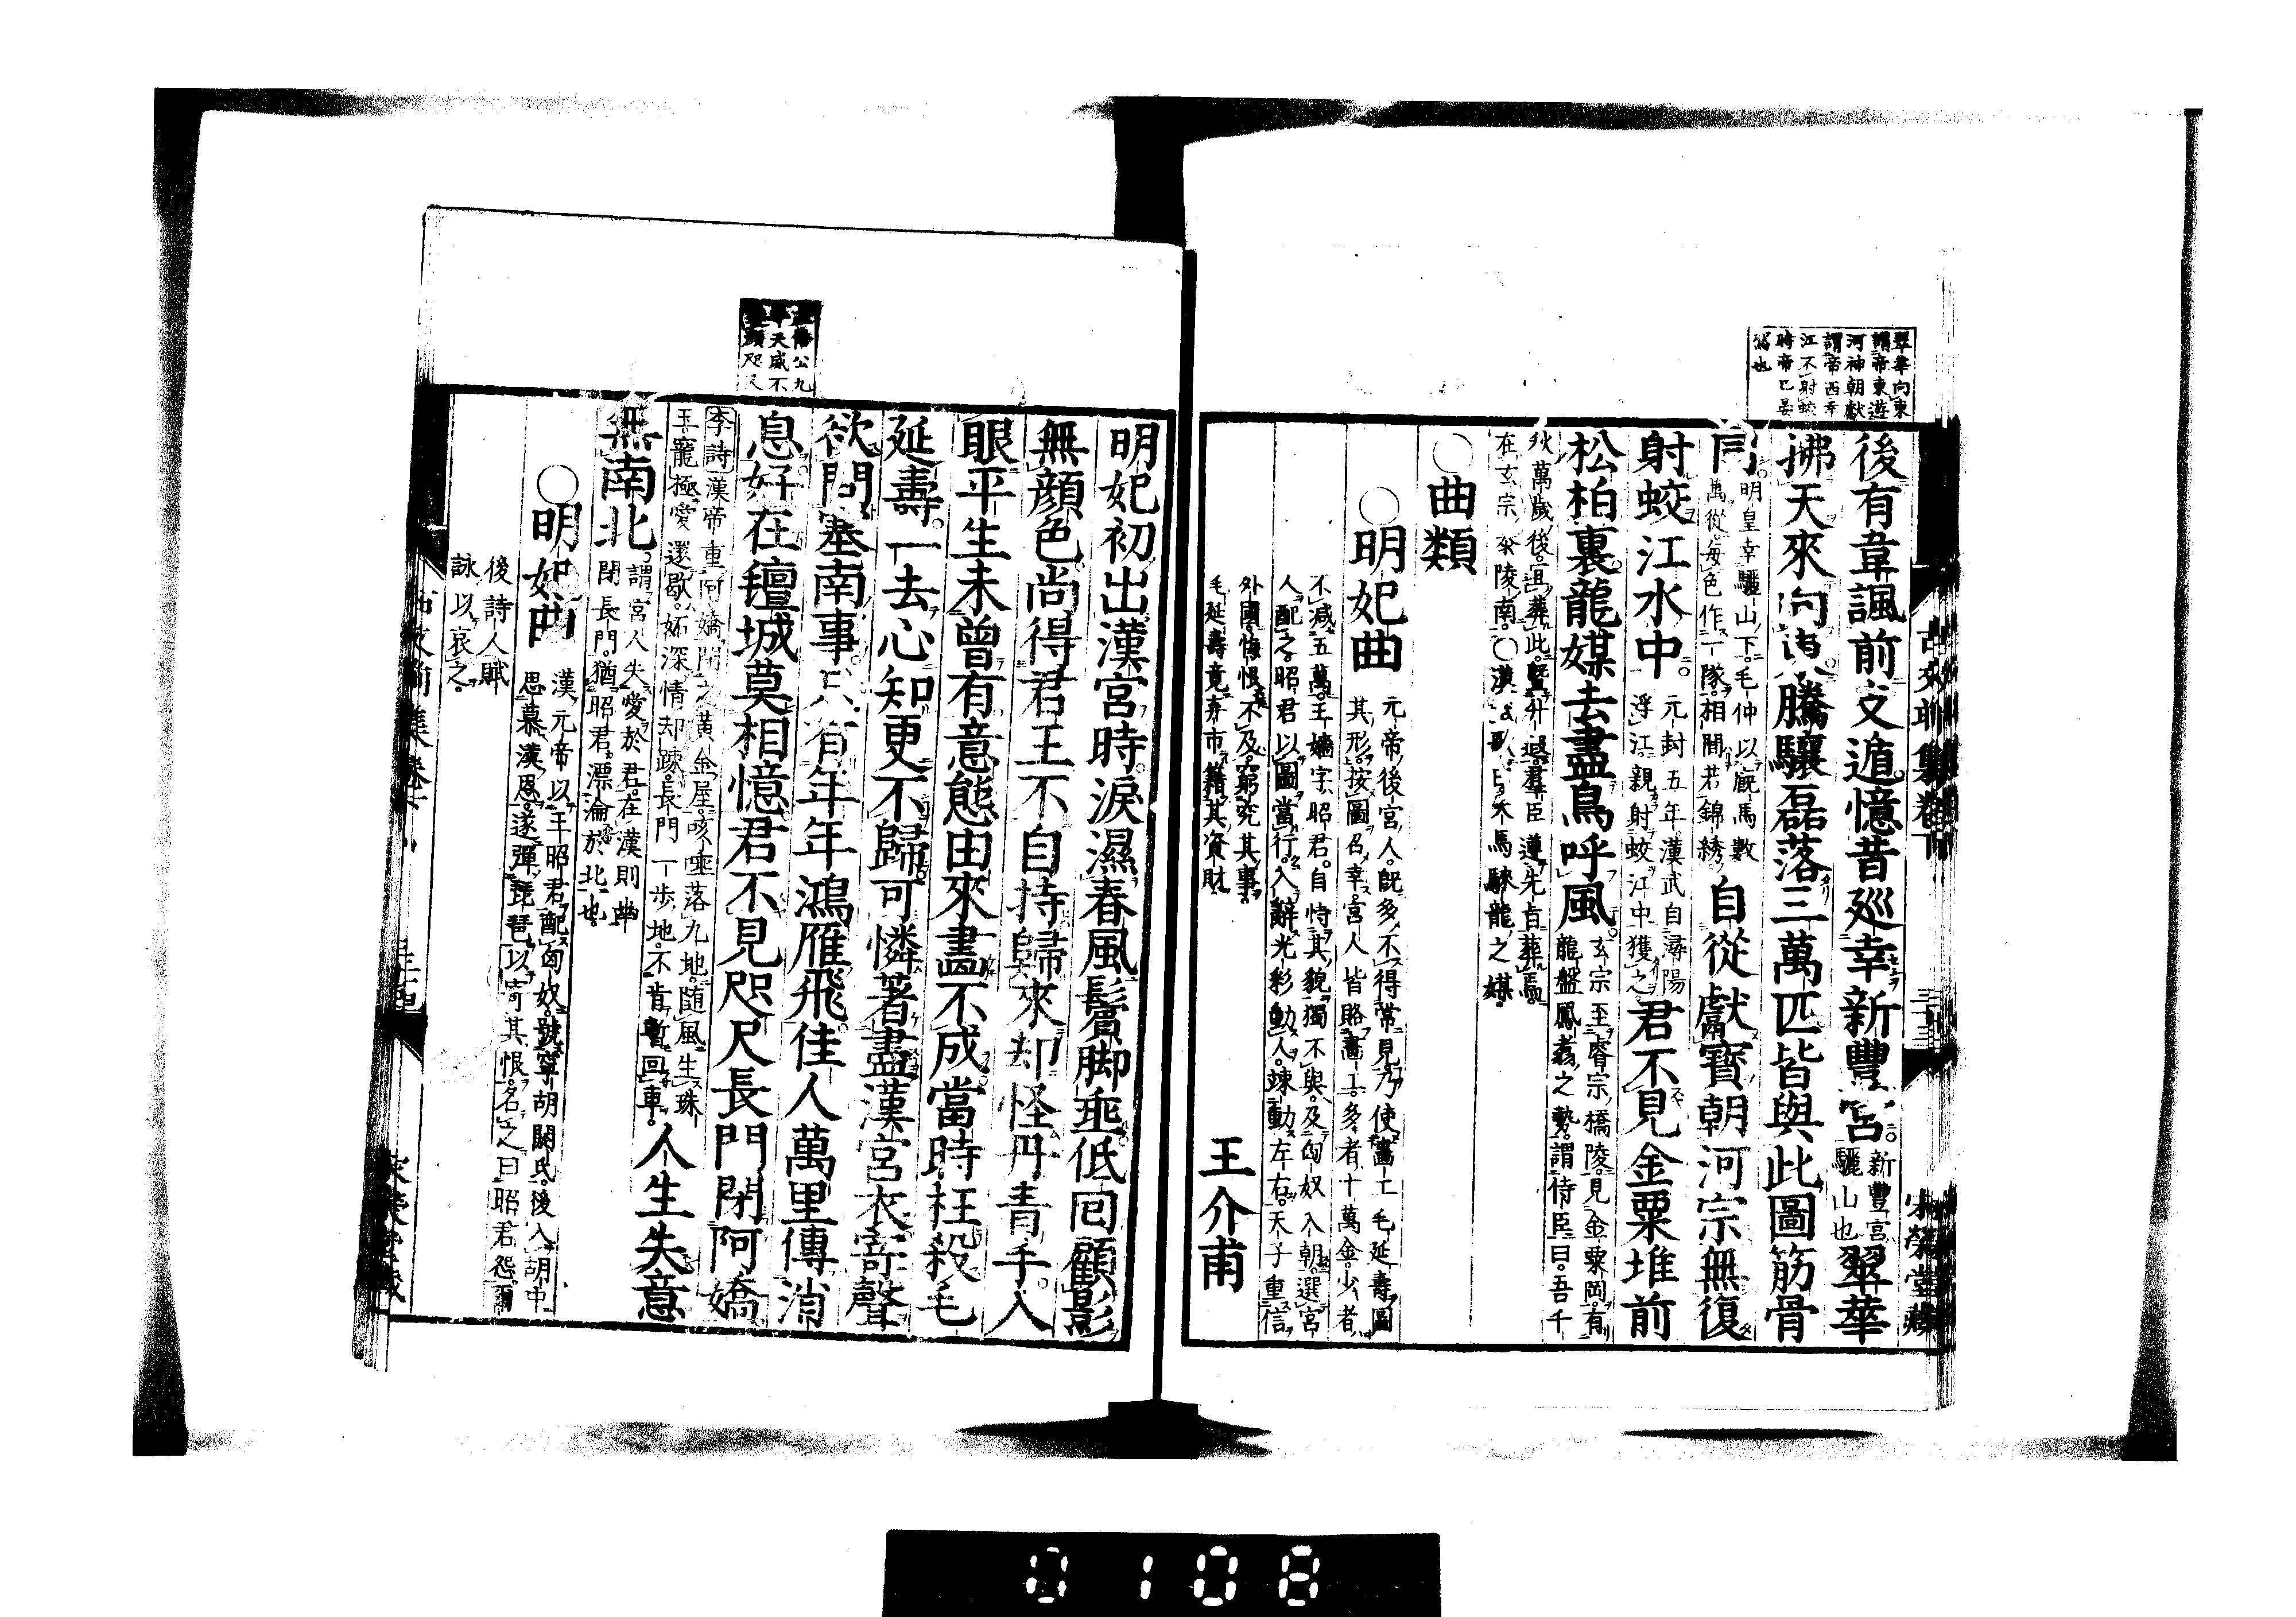 翠華向東
謂帝東遊
河神朝獻
謂帝西幸
江不射蛟
時帝已晏
駕也
後有韋諷前支遁憶昔巡幸新豐宮
新豐宮
驪山也
翠華
拂天來向東騰驤磊落三萬匹皆與此圖筋骨
同
明皇幸驪山下毛仲以厩馬數
萬從每色作一隊相間若錦綉
自從獻寶朝河宗無復
射蛟江水中
元封五年漢武自潯陽
浮江親射蛟江中獲之
君不見金粟堆前
松柏裏龍媒去盡鳥呼風
玄宗至睿宗橋陵見金粟岡有
龍盤鳳翥之勢謂侍臣曰吾千
秋萬歲後宜葬此暨升遐羣臣遵先旨葬焉
在玄宗泰陵南○漢 馬駥龍之媒
○曲類
○明妃曲
元帝後宮人既多不得常見乃使畫工毛延壽圖
其形按圖召幸宮人皆賂畫工多者十萬金少者
不減五萬王嬙字昭君自恃其貌獨不與及匈奴入朝選宮
人配之昭君以圖當行入辭光彩動人竦動左右天子重信
外國悔恨不及窮究其事
毛延壽竟弃市籍其資財
王介甫
明妃初出漢宮時淚濕春風鬢脚垂低囘顧影
無顔色尚得君王不自持歸來却怪丹青手入
眼平生未曾有意態由來畫不成當時枉殺毛
延壽一去心知更不歸可憐著盡漢宮衣寄聲
欲問塞南事只有年年鴻雁飛佳人萬里傳消
息好在氊城莫相憶君不見咫尺長門閉阿嬌
李詩漢帝重阿嬌閉之黃金屋咳唾落九地随風生珠
玉寵極愛還歇妬深情却疎長門一步地不肯暫回車
人生失意
無南北
謂宮人失愛於君在漢則幽
閉長門猶昭君漂淪於北也
○明妃曲
漢元帝以王昭君配匈奴號寧胡閼氏後入胡中
思慕漢恩遂彈琵琶以寄其恨名之曰昭君怨爾
後詩人賦
詠以哀之
僖公九
年天威不
違顔咫尺
古文前集卷下
三十三
宋榮堂藏
0108